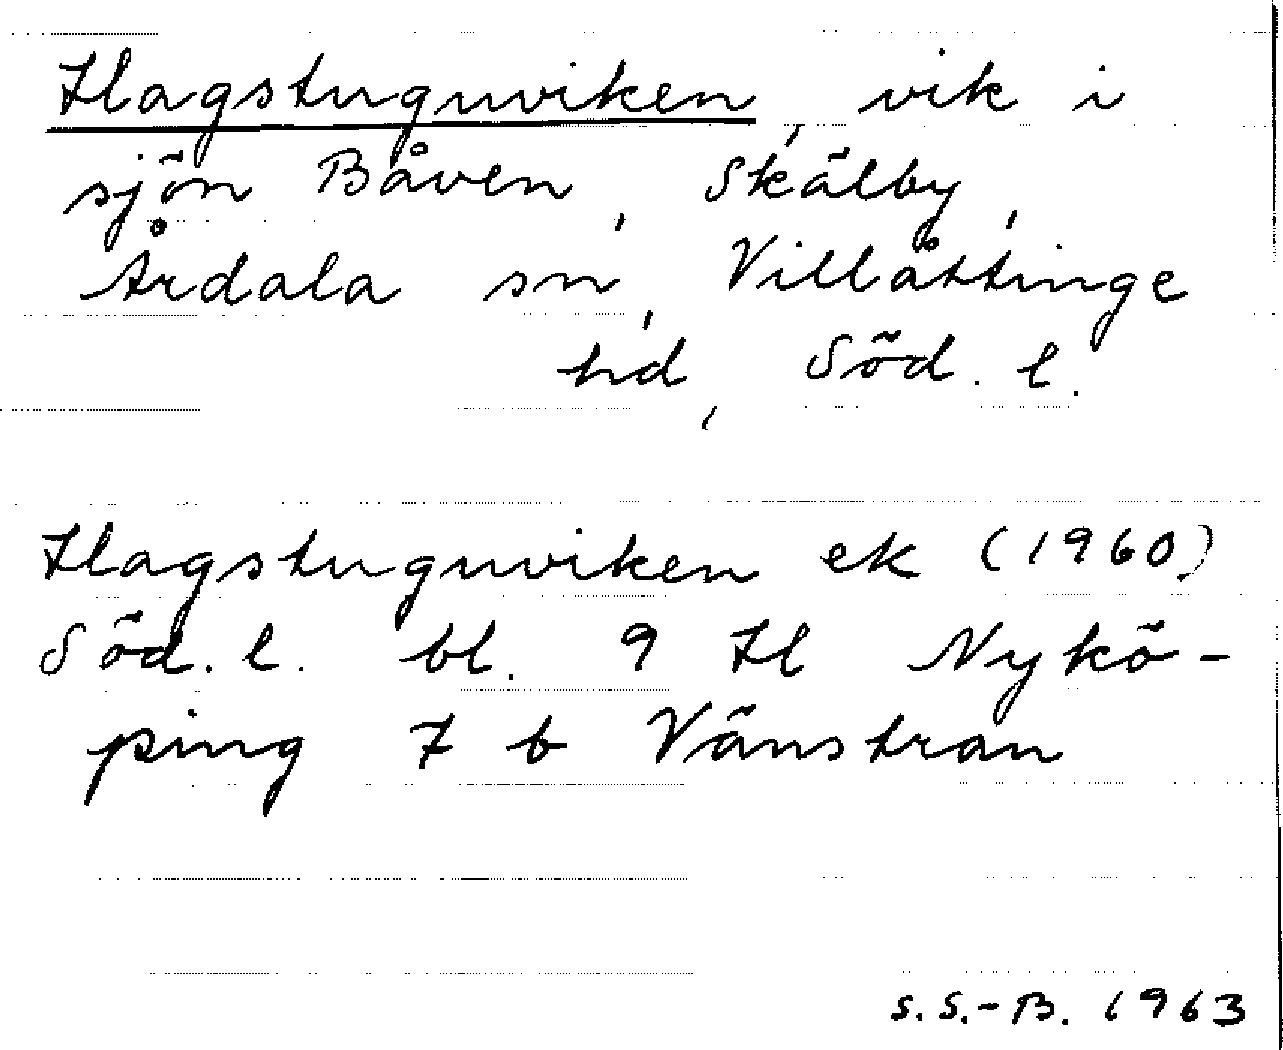 Hagstuguviken, vik i
sjön Båven, Skälby,
Årdala sn, Villåttinge
hd, Söd. l.
Hagstuguviken ek (1960)
Söd. l. bl. 9 H Nykö-
ping 7 b Vänstran
S. S.-B. 1963